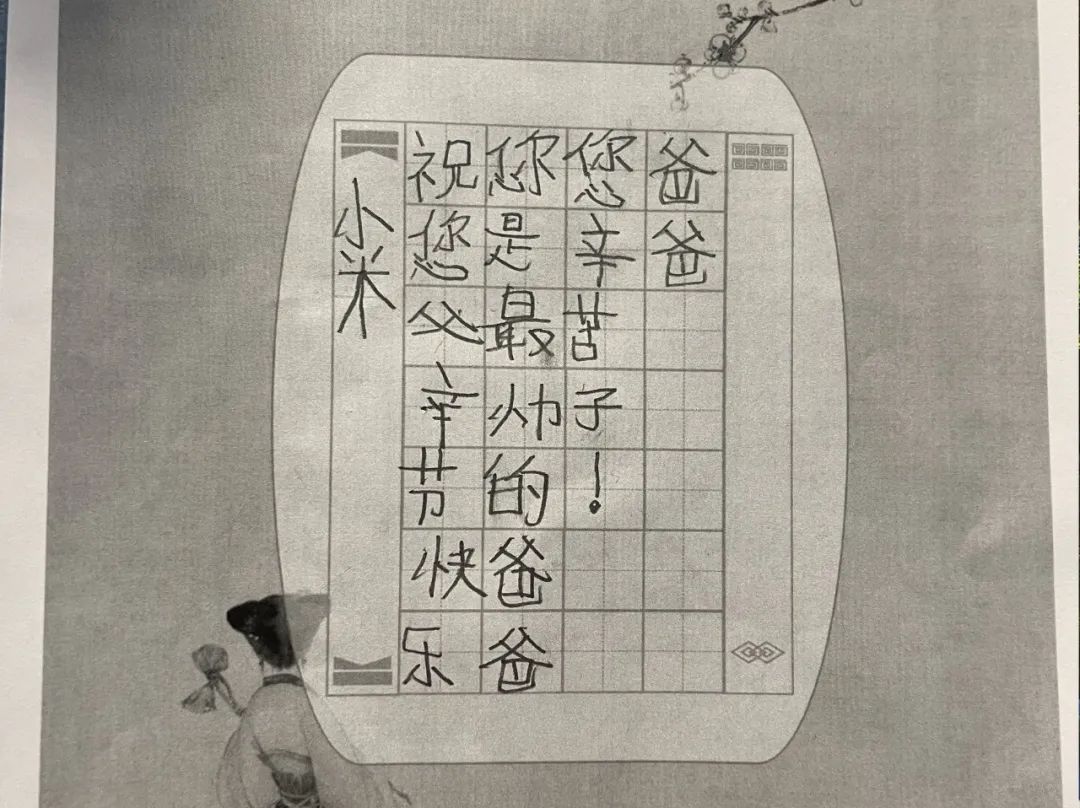 爸爸
您辛苦子！
您是最帅的爸爸
祝您父辛节快乐
小米